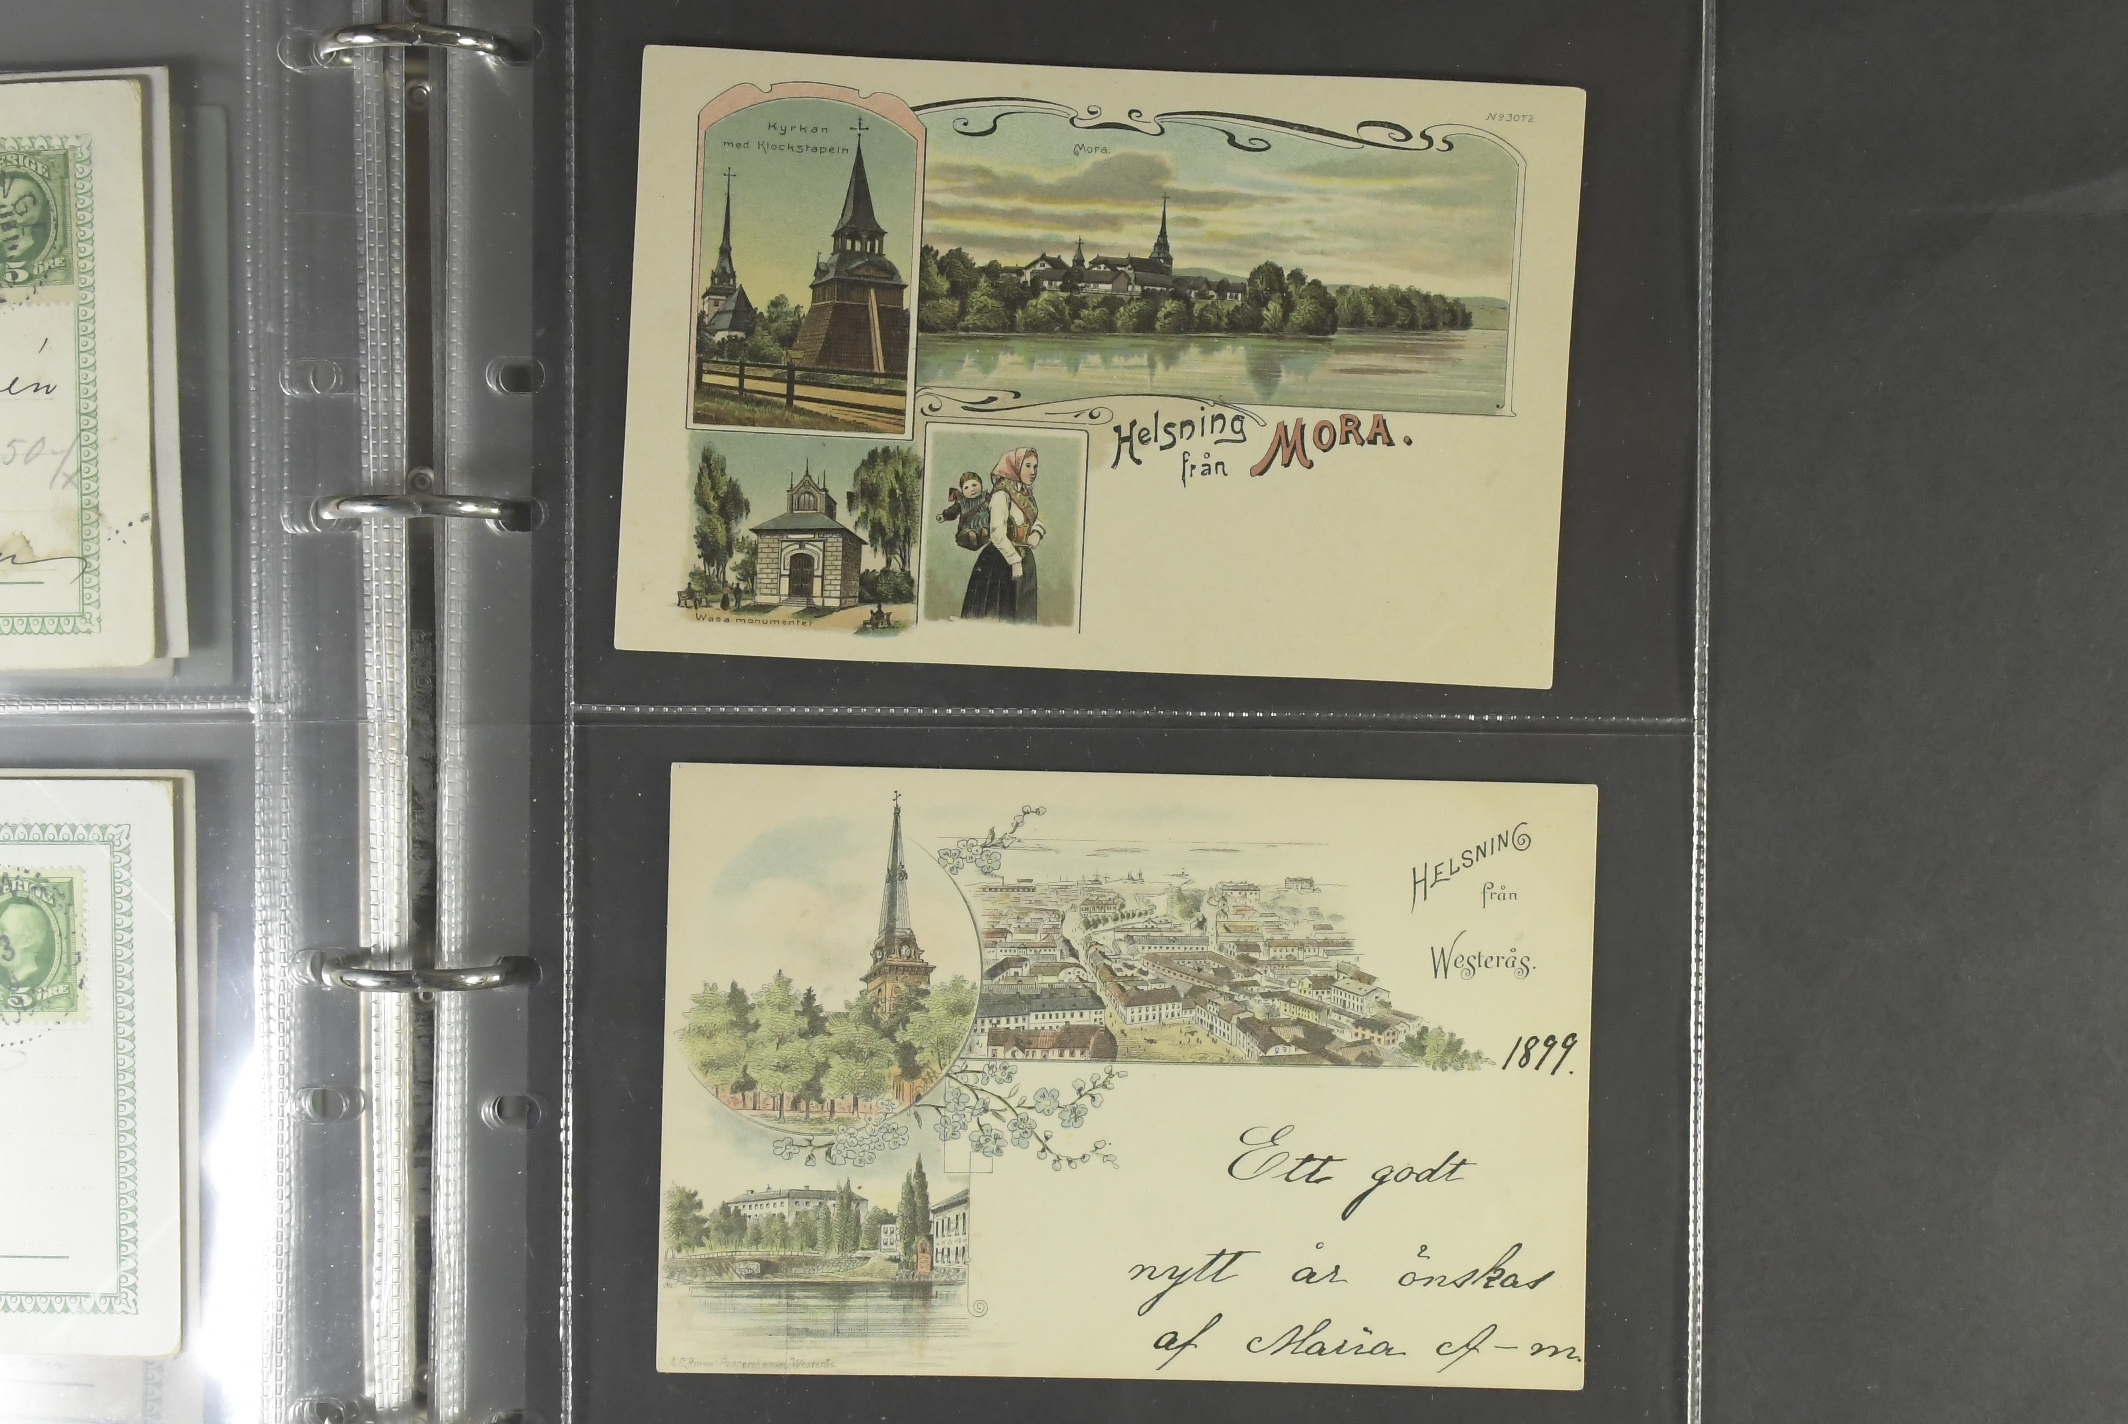 SVERIGE
5 ÖRE
en
50-
Kyrkan
med Klockstapeln
Mora.
N930T2
Helsning
från MORA.
Wasa monumentet
SVERIGE
5 ÖRE
HELSNING
från
Westerås.
1899.
Ett godt
nytt år önskas
af Maria A-m.
Pappershandel, Westerås